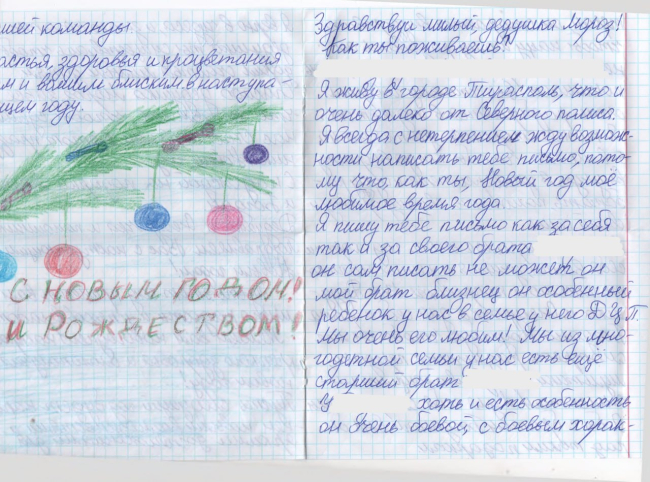 шей команды.
стья, здоровья и кроцветания
м и вашим блиским в наступа-
щем году.
С НОВЫМ ГОДОМ!
и РОЖДЕСТВОМ!
Здравствуй милый, дедушка Мороз!
Как ты поживаешь?
Я живу в городе Тирасполь, что и
очень далеко от Северного полюса.
Я всегда с нетерпением жду возмож-
ности написать тебе письмо, пото-
му что, как ты, Новый год моё
любимое время года
Я пишу тебе письмо как за себя
так и за своего брата
он сам писать не может он
мой брат близнец он особенный
ребёнок у нас в семье у него Д.Ц.П.
Мы очень его любим! Мы из мно-
годетной семьи у нас есть ещё
старший брат
У хоть и есть особенность
он очень боевой с боевым харак-